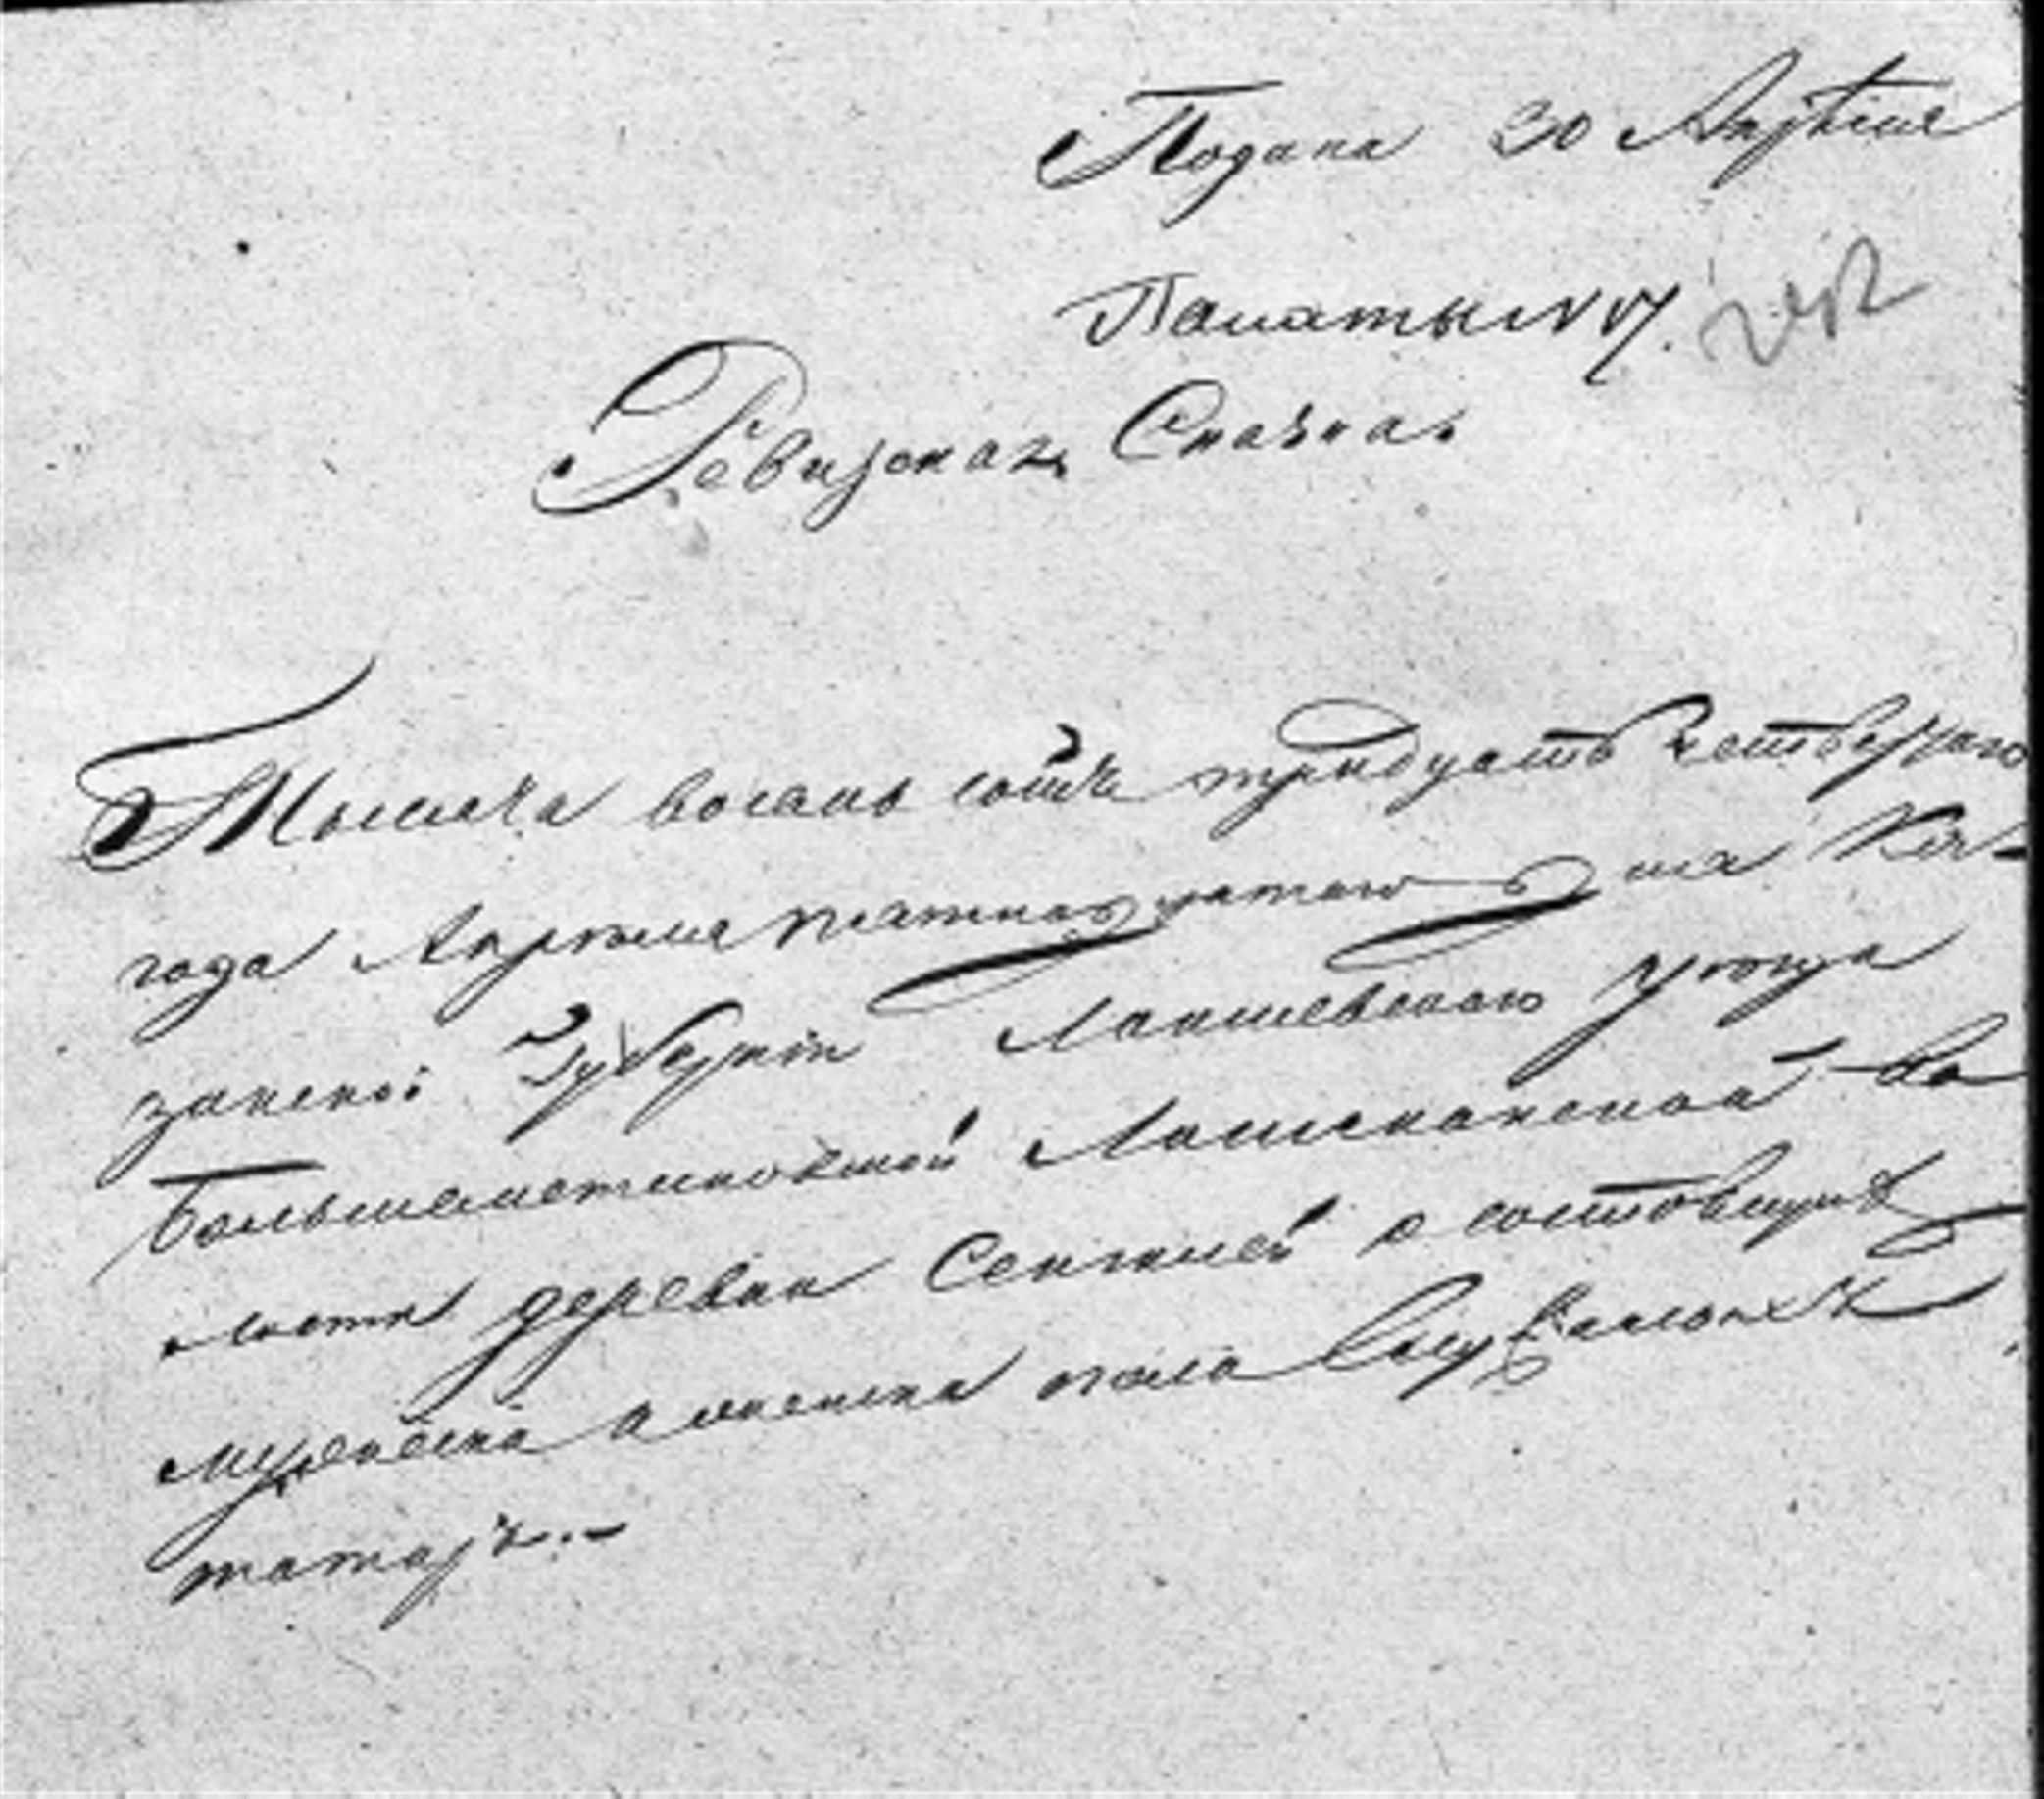 Подана 30 Апреля
Палаты N 17.
Ревизская Сказка
Тысяча восемь сотъ тридцать четвертаго
года Апреля пятнадцатаго дня Ка-
занской Губернiи Лаишевскаго уезда
Большеметиковской Лашманской во
лости деревни Сенгилей о состоящихъ
мужеска и женска пола служилыхъ
татаръ.-